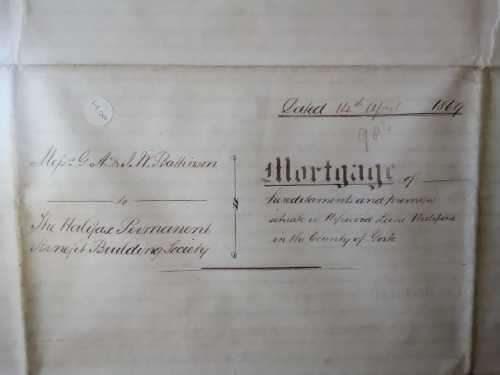 Dated 14th April 1869
Messrs G. A. & J. W. Battinson
to
The Halifax Permanent
Benefit Building Society
Mortgage of
hereditaments and premises
situate in Lane Halifax
in the County of York